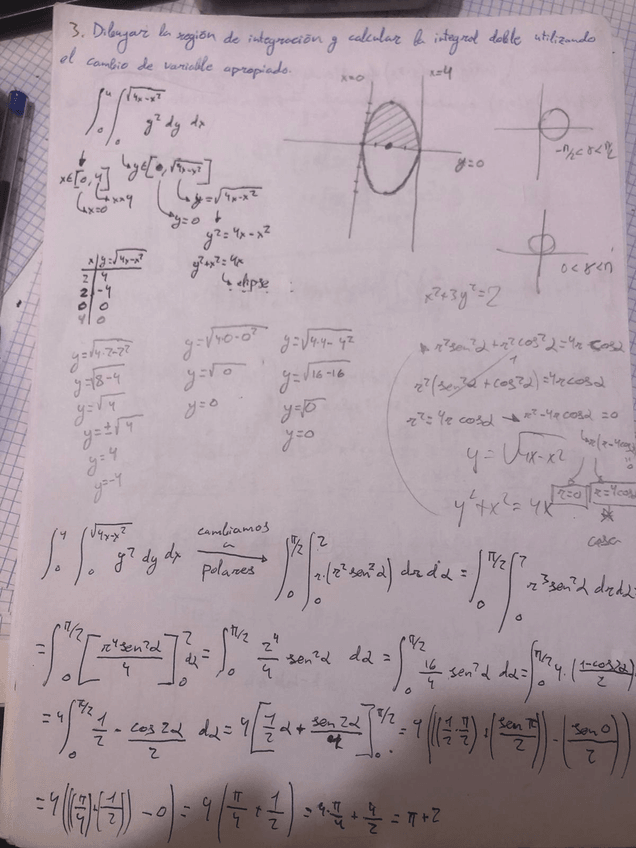 3. Dibujar la región de integración y calcular la integral doble utilizando
el cambio de variable apropiado.
∫₀⁴ ∫₀^√(4x-x²) y² dy dx
x=0
x=4
y=0
-π/2 < γ < π/2
x∈[0,4]
x=0
x=4
y∈[0,√(4x-x²)]
y=0
y=√(4x-x²)
y²=4x-x²
y²+x²=4x
elipse
0 < γ < π
x | y=√(4x-x²)
2 | 4
2 | -4
0 | 0
4 | 0
x²+3y²=2
y=√(4·2-2²)
y=√(8-4)
y=√4
y=±√4
y=4
y=-4
y=√(4·0-0²)
y=√0
y=0
y=√(4·4-4²)
y=√(16-16)
y=√0
y=0
r²sen²α+r²cos²α=4r cosα
r²(sen²α+cos²α)=4r cosα
1
r²=4r cosα → r²-4r cosα=0
r(r-4cosα
=0
y=√(4x-x²)
y²+x²=4x
r=0
r=4cosα
∫₀⁴ ∫₀^√(4x-x²) y² dy dx cambiamos a polares → ∫₀^π/2 ∫₀² r·(r²sen²α) dr dα = ∫₀^π/2 ∫₀² r³sen²α dr dα=
= ∫₀^π/2 [r⁴sen²α/4]₀² dα = ∫₀^π/2 2⁴/4 sen²α dα = ∫₀^π/2 16/4 sen²α dα = ∫₀^π/2 4·(1-cos2α/2)
= 4∫₀^π/2 1/2 - cos2α/2 dα = 4[1/2 α + sen2α/4]₀^π/2 = 4(((1/2·π/2)+(sen π/2))-(sen 0/2))
= 4(((π/4)+(1/2))-0) = 4(π/4+1/2) = 4·π/4+4/2 = π+2